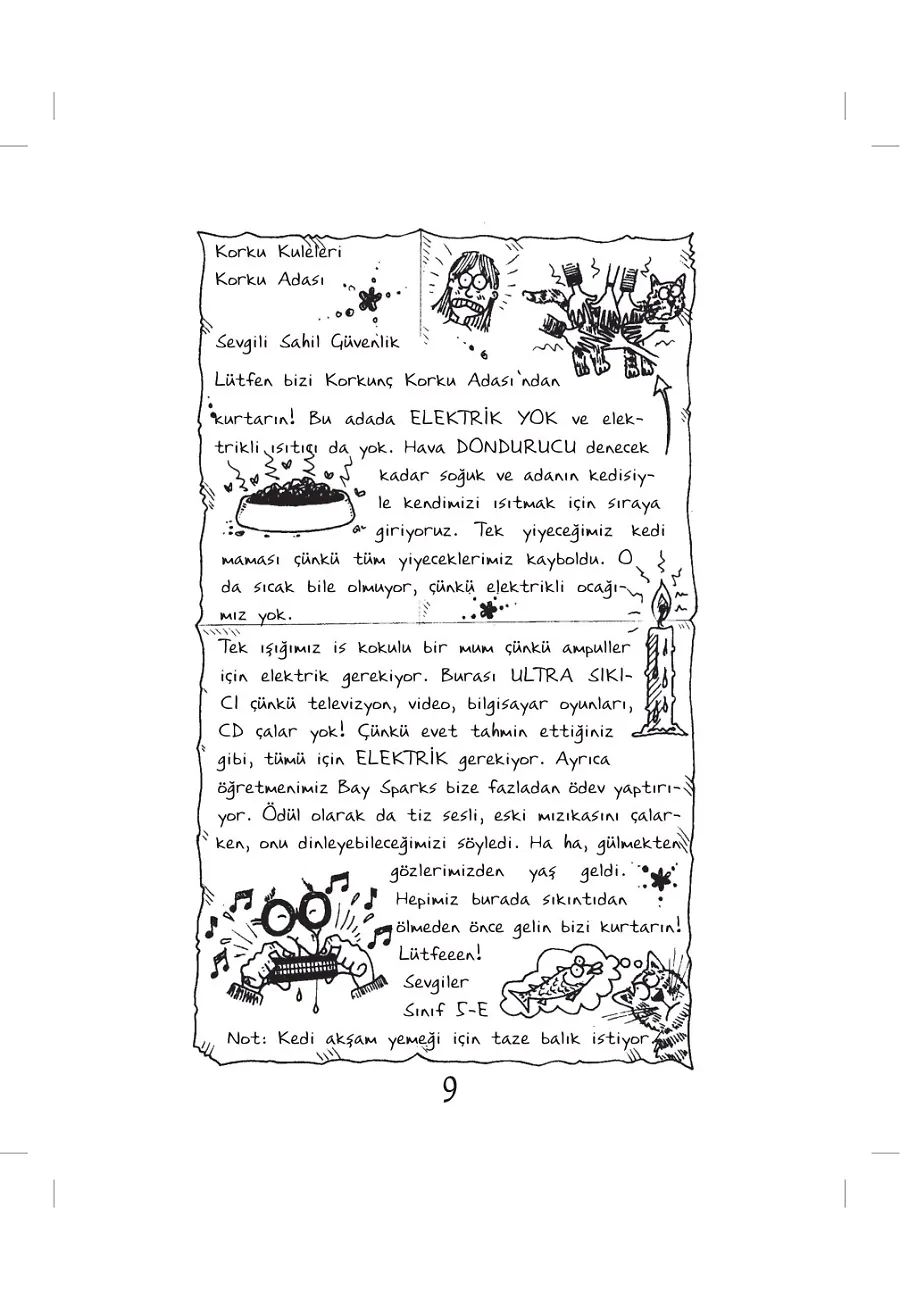 Korku Kuleleri
Korku Adası
Sevgili Sahil Güvenlik
Lütfen bizi Korkunç Korku Adası'ndan
kurtarın! Bu adada ELEKTRİK YOK ve elek-
trikli ısıtıcı da yok. Hava DONDURUCU denecek
kadar soğuk ve adanın kedisiy-
le kendimizi ısıtmak için sıraya
giriyoruz. Tek yiyeceğimiz kedi
maması çünkü tüm yiyeceklerimiz kayboldu. O
da sıcak bile olmuyor, çünkü elektrikli ocağı-
mız yok.
Tek ışığımız is kokulu bir mum çünkü ampuller
için elektrik gerekiyor. Burası ULTRA SIKI-
CI çünkü televizyon, video, bilgisayar oyunları,
CD çalar yok! Çünkü evet tahmin ettiğiniz
gibi, tümü için ELEKTRİK gerekiyor. Ayrıca
öğretmenimiz Bay Sparks bize fazladan ödev yaptırı-
yor. Ödül olarak da tiz sesli, eski mızıkasını çalar-
ken, onu dinleyebileceğimizi söyledi. Ha ha, gülmekten
gözlerimizden yaş geldi.
Hepimiz burada sıkıntıdan
ölmeden önce gelin bizi kurtarın!
Lütfeeen!
Sevgiler
Sınıf 5-E
Not: Kedi akşam yemeği için taze balık istiyor
9